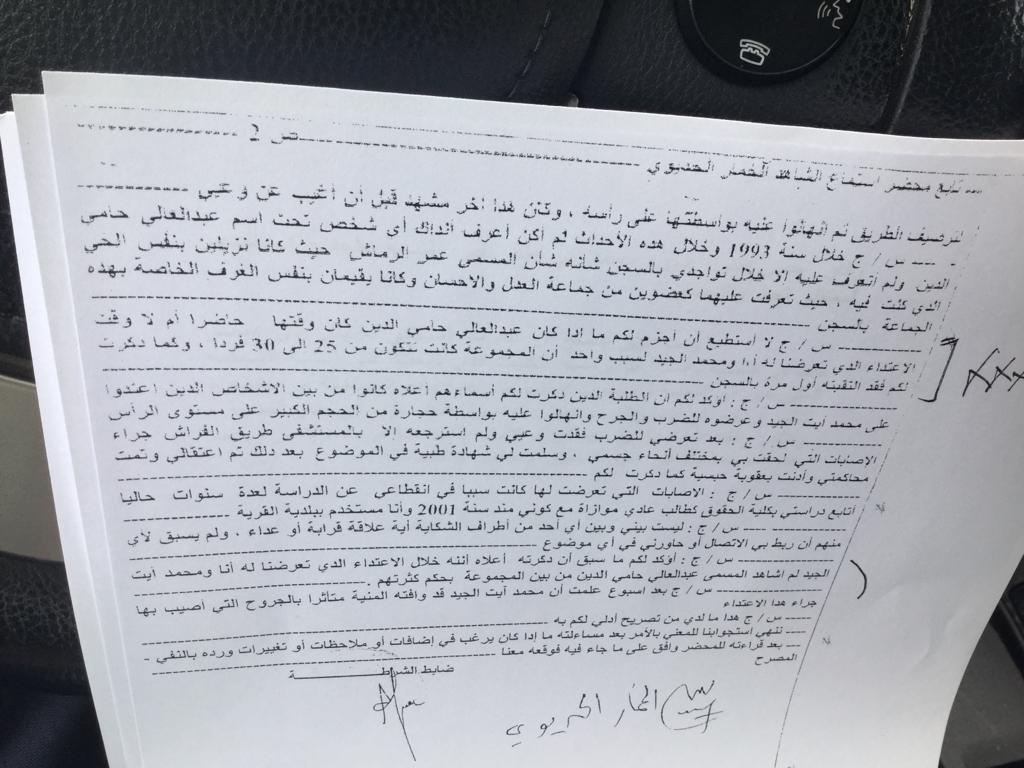 --- تابع محضر استماع الشاهد الخمار الحديوي --- ص 2
لترصيف الطريق تم انهالوا عليه بواسطتها على رأسه ، وكان هدا اخر مشهد قبل أن أغيب عن وعيي
---- س / ج خلال سنة 1993 وخلال هده الأحداث لم أكن أعرف انداك أي شخص تحت اسم عبدالعالي حامي
الدين ولم اتعرف عليه إلا خلال تواجدي بالسجن شأنه شأن المسمى عمر الرماش حيث كانا نزيلين بنفس الحي
الدي كنت فيه ، حيث تعرفت عليهما كعضوين من جماعة العدل والاحسان وكانا يقيمان بنفس الغرف الخاصة بهده
الجماعة بالسجن
---- س / ج لا أستطيع أن أجزم لكم ما ادا كان عبدالعالي حامي الدين كان وقتها حاضرا أم لا وقت
الاعتداء الدي تعرضنا له أنا ومحمد الجيد لسبب واحد أن المجموعة كانت تتكون من 25 الى 30 فردا ، وكما دكرت
لكم فقد التقيته أول مرة بالسجن
---- س / ج : أؤكد لكم أن الطلبة الدين دكرت لكم أسماءهم أعلاه كانوا من بين الاشخاص الدين اعتدوا
على محمد ايت الجيد وعرضوه للضرب والجرح وانهالوا عليه بواسطة حجارة من الحجم الكبير على مستوى الرأس
---- س / ج : بعد تعرضي للضرب فقدت وعيي ولم استرجعه الا بالمستشفى طريق الفراش جراء
الاصابات التي لحقت بي بمختلف أنحاء جسمي ، وسلمت لي شهادة طبية في الموضوع بعد دلك تم اعتقالي وتمت
محاكمتي وأدنت بعقوبة حبسية كما دكرت لكم
---- س / ج : الاصابات التي تعرضت لها كانت سببا في انقطاعي عن الدراسة لعدة سنوات حاليا
أتابع دراستي بكلية الحقوق كطالب عادي موازاة مع كوني مند سنة 2001 وأنا مستخدم ببلدية القرية
---- س / ج : ليست بيني وبين أي أحد من أطراف الشكاية أية علاقة قرابة أو عداء ، ولم يسبق لأي
منهم أن ربط بي الاتصال أو حاورني في أي موضوع
---- س / ج : أؤكد لكم ما سبق أن دكرته أعلاه أننه خلال الاعتداء الدي تعرضنا له أنا ومحمد أيت
الجيد لم اشاهد المسمى عبدالعالي حامي الدين من بين المجموعة بحكم كثرتهم .
---- س / ج بعد اسبوع علمت أن محمد أيت الجيد قد وافته المنية متأثرا بالجروح التي أصيب بها
جراء هدا الاعتداء
---- س / ج هدا ما لدي من تصريح أدلي لكم به
---- ننهي استجوابنا للمعني بالأمر بعد مساءلته ما إدا كان يرغب في إضافات أو ملاحظات أو تغييرات ورده بالنفي -
---- بعد قراءته للمحضر وافق على ما جاء فيه فوقعه معنا
المصرح ضابط الشرطة
الخمار الحديوي